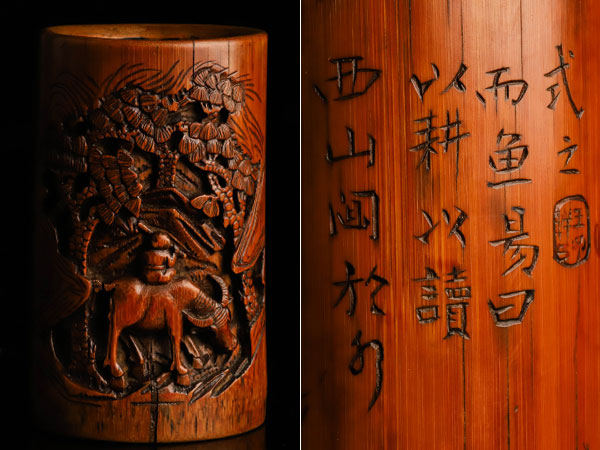 西山间於
以耕以讀
而鱼易曰
式之